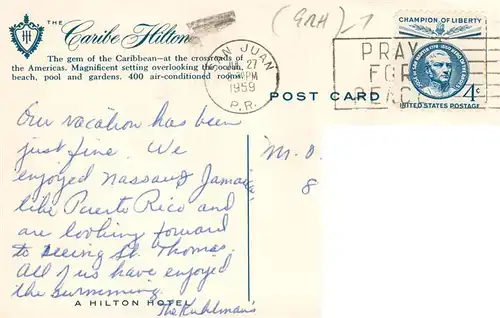 THE
Caribe Hilton
The gem of the Caribbean—at the crossroads of
the Americas. Magnificent setting overlooking the ocean,
beach, pool and gardens. 400 air-conditioned rooms.
(GRH)-1
SAN JUAN
27
PM
1959
P.R.
PRAY
FOR
PEACE
CHAMPION OF LIBERTY
4c
UNITED STATES POSTAGE
POST CARD
Our vacation has been
just fine. We
enjoyed Nassau & Jamaica,
like Puerto Rico and
are looking forward
to seeing St. Thomas.
All of us have enjoyed
the swimming.
The Kuhlman's
M. D.
8
A HILTON HOTEL